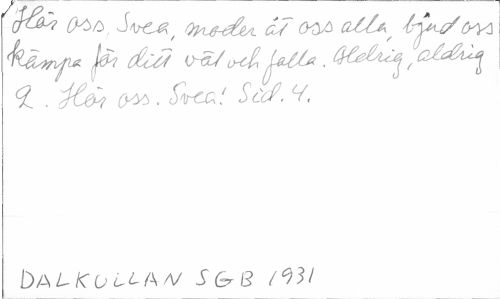 Hör oss, Svea, moder åt oss alla, bjud oss
kämpa för ditt väl och falla. Aldrig, aldrig
2. Hör oss. Svea! Sid. 4.
DALKULLAN SGB 1931